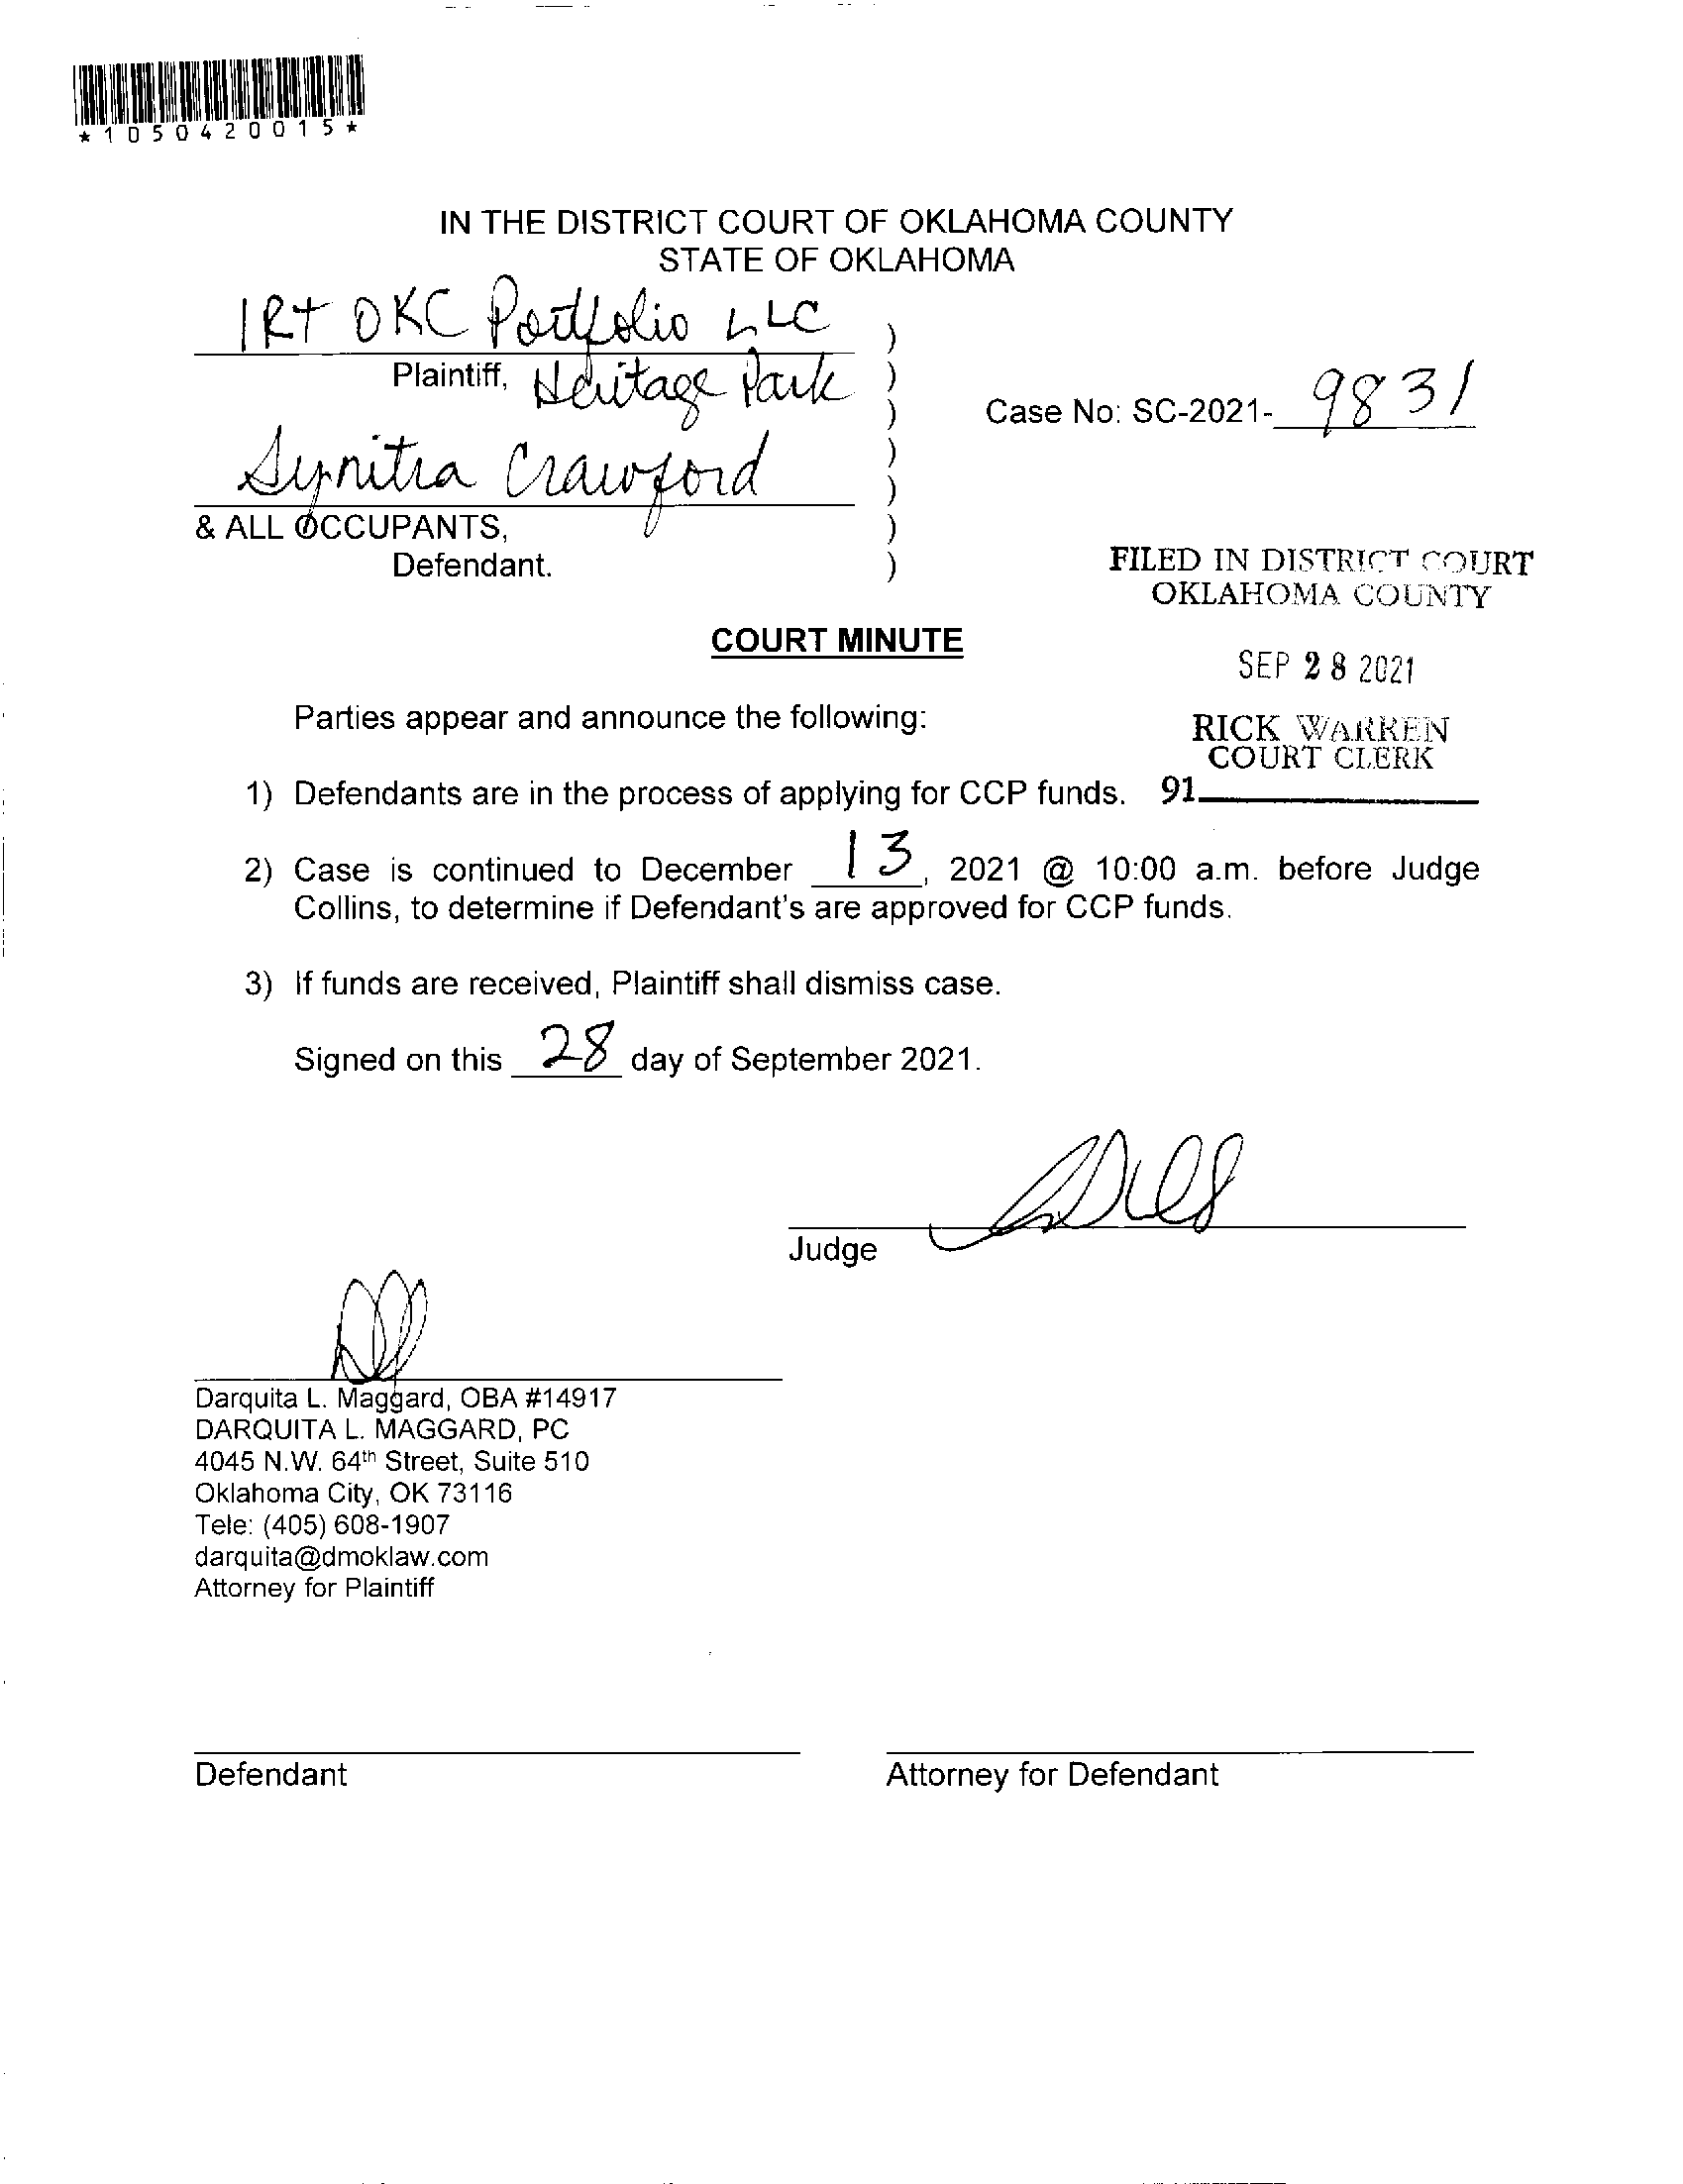 *1050420015*
IN THE DISTRICT COURT OF OKLAHOMA COUNTY
STATE OF OKLAHOMA
IRT OKC Portfolio LLC )
Plaintiff, Heritage Park )
) Case No: SC-2021- 9831
Synitra Crawford )
)
& ALL OCCUPANTS, )
Defendant. )
FILED IN DISTRICT COURT
OKLAHOMA COUNTY
COURT MINUTE
SEP 28 2021
Parties appear and announce the following:
RICK WARREN
COURT CLERK
1) Defendants are in the process of applying for CCP funds. 91
2) Case is continued to December 13, 2021 @ 10:00 a.m. before Judge
Collins, to determine if Defendant's are approved for CCP funds.
3) If funds are received, Plaintiff shall dismiss case.
Signed on this 28 day of September 2021.
Judge
Darquita L. Maggard, OBA #14917
DARQUITA L. MAGGARD, PC
4045 N.W. 64th Street, Suite 510
Oklahoma City, OK 73116
Tele: (405) 608-1907
darquita@dmoklaw.com
Attorney for Plaintiff
Defendant Attorney for Defendant